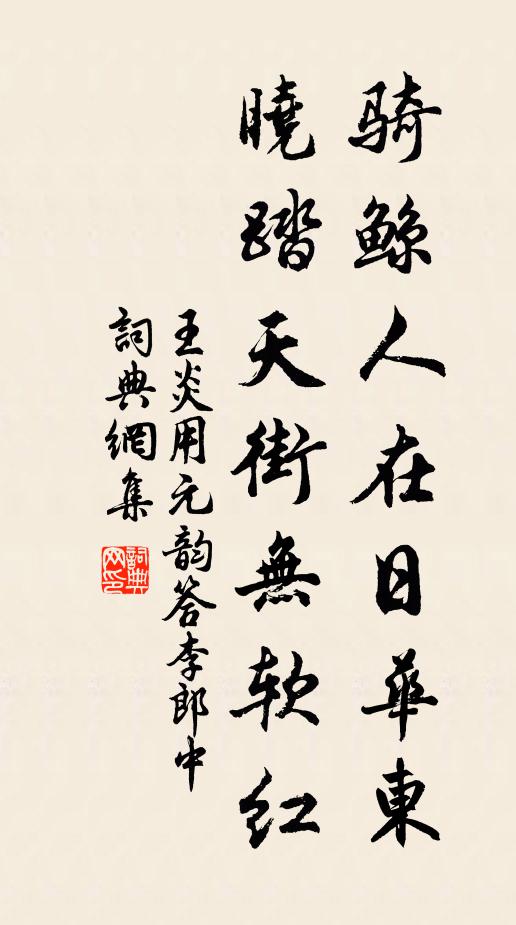 骑鲸人在日華東
曉踏天街無软红
王炎用元韵答李郎中
詞典網集
詞典网印